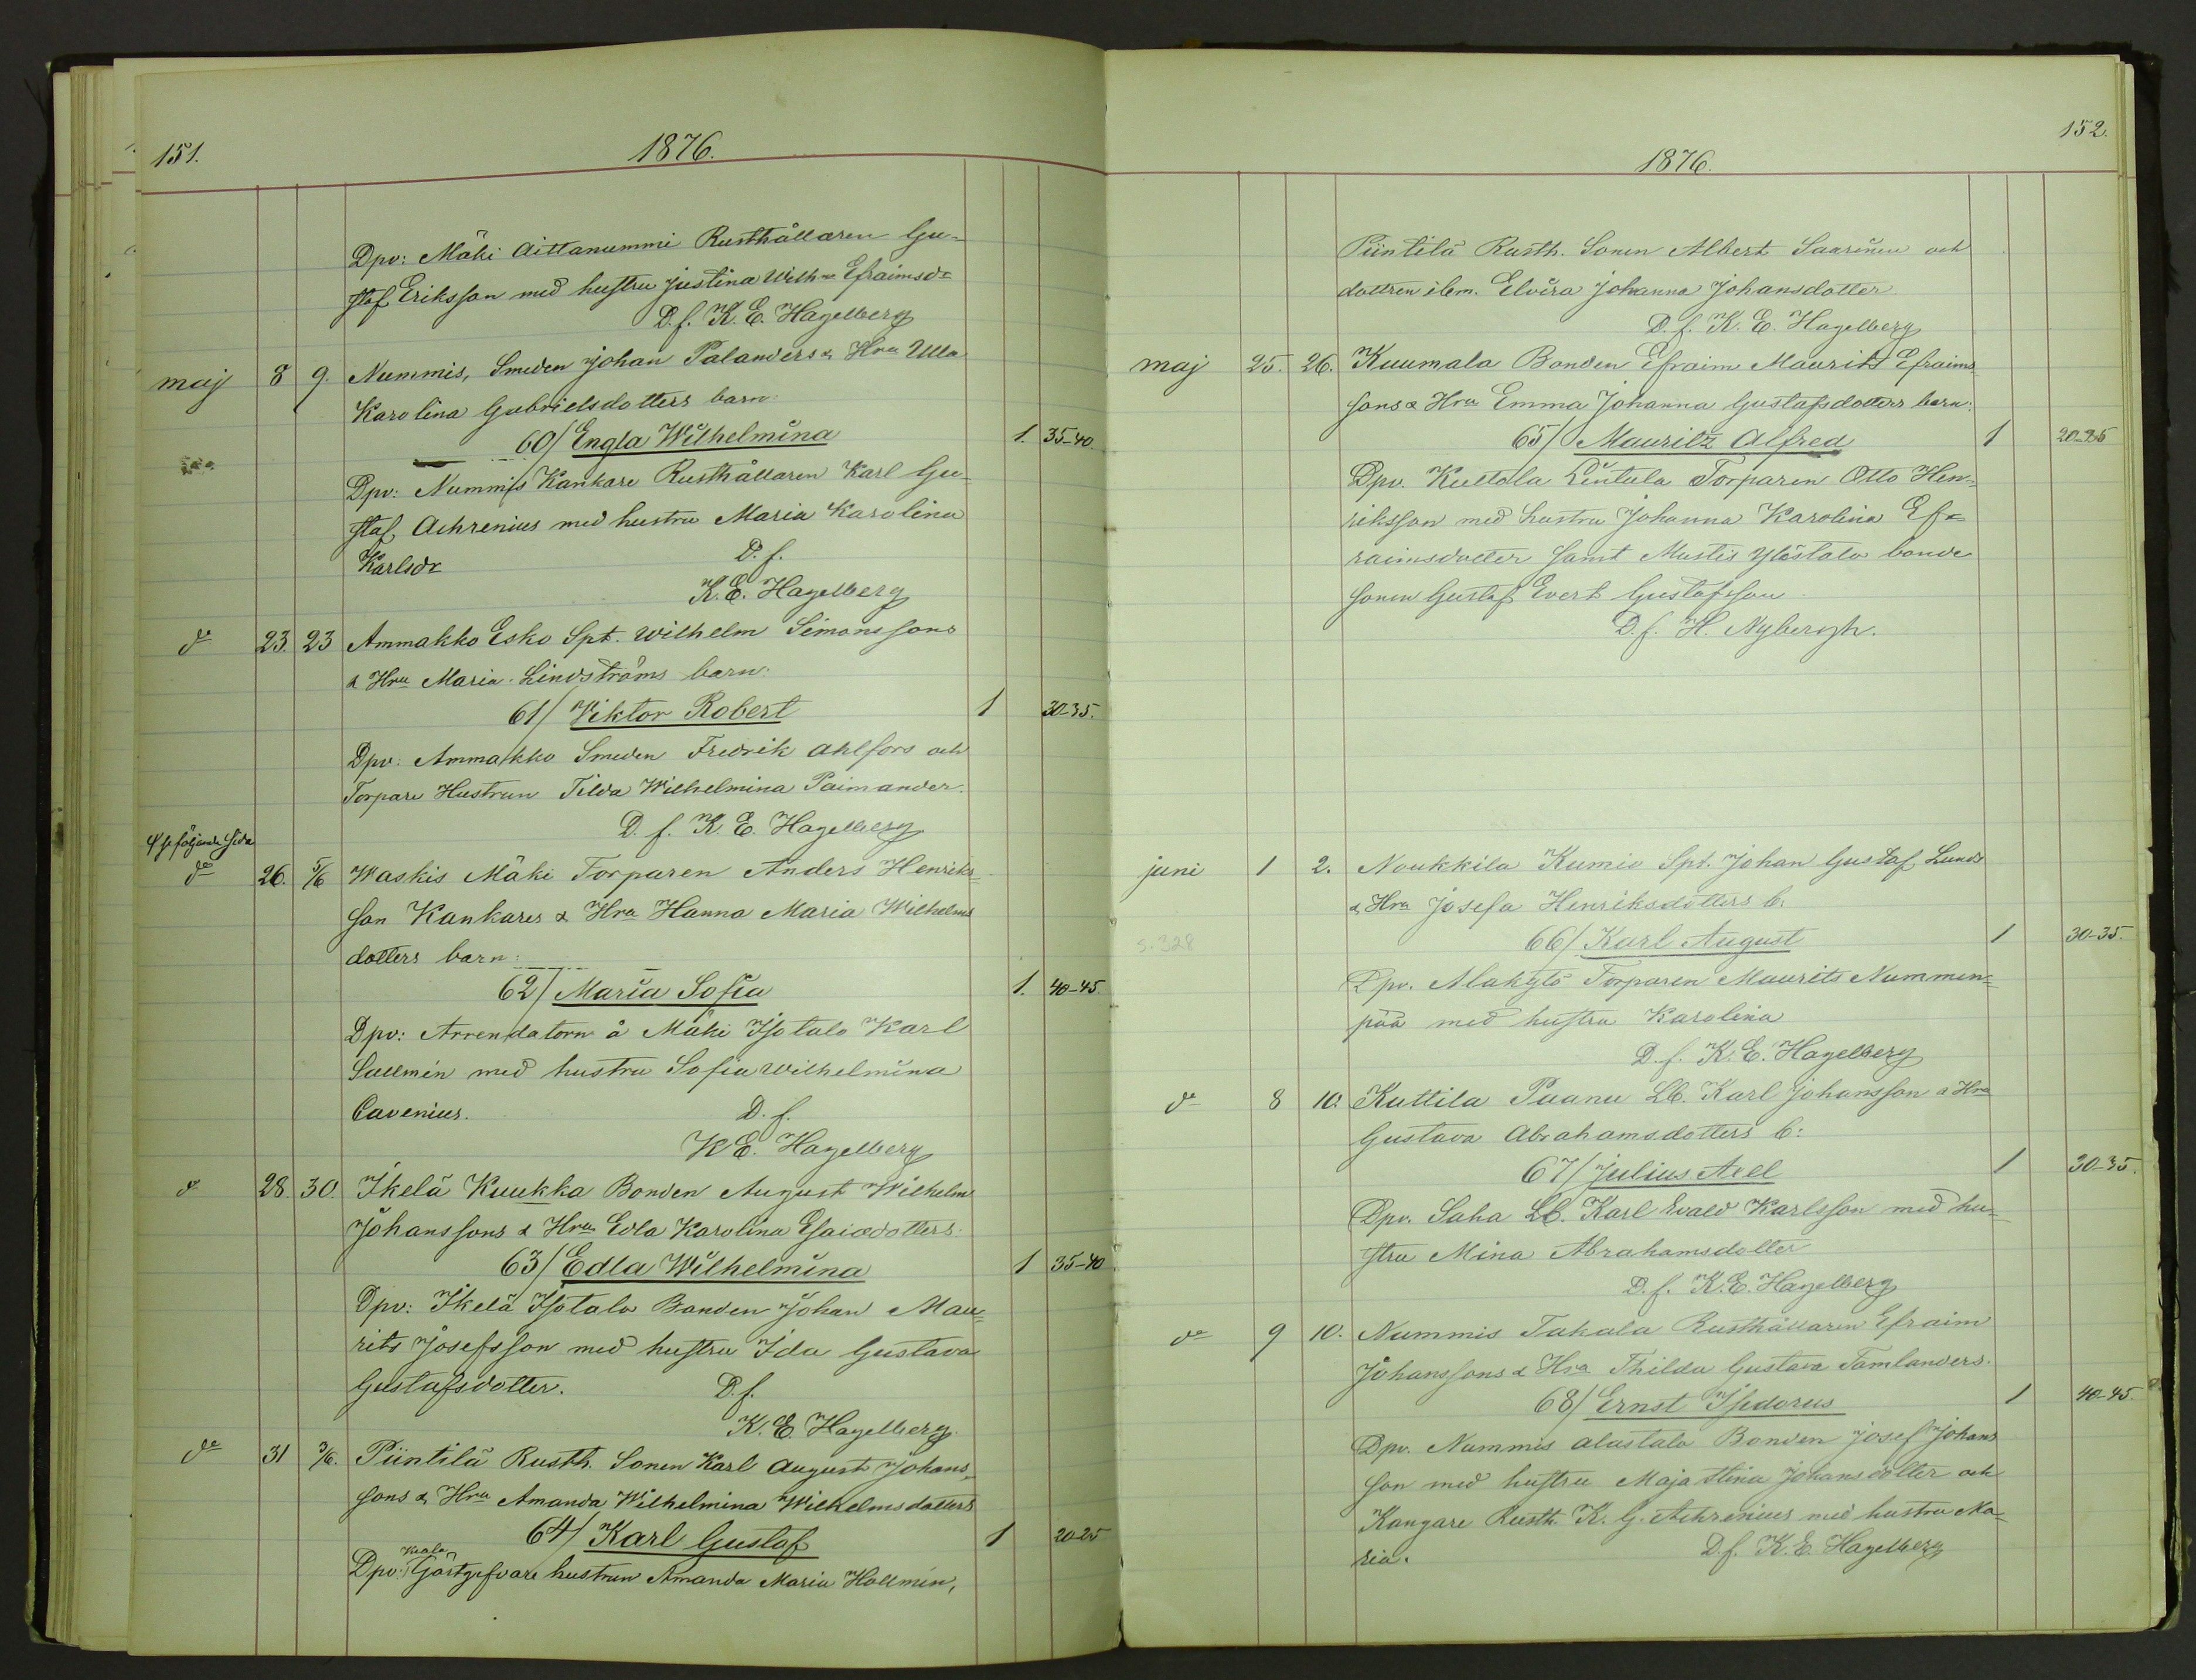 151.
1876.
Dpv: Mäki Aittanummi Rusthållaren Gu-
staf Eriksson med hustru Justina Wilh:a Efraimsdr
D. f. K. E. Hagelberg
maj 8 9. Nummis, Smeden Johan Palanders & Hru Ulla
Karolina Gabrielsdotters barn:
60/ Engla Wilhelmina 1. 35-40.
Dpv: Nummis Kankare Rusthållaren Karl Gu-
staf Achrenius med hustru Maria Karolina
Karlsdr D. f.
K. E. Hagelberg
do 23. 23 Ammakko Esko Spt. Wilhelm Simonssons
& Hru Maria Lindströms barn:
61/ Viktor Robert 1 30-35.
Dpv: Ammakko Smeden Fredrik Ahlfors och
Torpare Hustrun Tilda Wilhelmina Paimander.
D. f. K. E. Hagelberg
se följande sida
do 26. 5/6 Waskis Mäki Torparen Anders Henriks-
son Kankares & Hru Hanna Maria Wilhelms
dotters barn:
62/ Maria Sofia 1. 40-45.
Dpv: Arrendatorn å Mäki Isotalo Karl
Sallmén med hustru Sofia Wilhelmina
Cavenius. D. f.
K E. Hagelberg
do 28. 30. Ikelä Kuukka Bonden August Wilhelm
Johanssons & Hru Edla Karolina Esaiædotters
63/ Edla Wilhelmina 1 35-40
Dpv: Ikelä Isotalo Bonden Johan Mau=
rits Josefsson med hustru Ida Gustava
Gustafsdotter. D. f.
K. E. Hagelberg.
do 31 3/6. Piintilä Rusth. Sonen Karl August Johans
sons & Hru Amanda Wilhelmina Wilhelmsdotters
64/ Karl Gustaf 1 20-25
Dpv: Gästgifvare hustrun Amanda Maria Hollmén,
152.
1876.
Piintilä Rusth. Sonen Albert Saarinen och
dottren ibm. Elvira Johanna Johansdotter
D. f. K. E. Hagelberg
maj 25. 26. Kuumala Bonden Efraim Maurits Efraims
sons & Hru Emma Johanna Gustafsdotters barn:
65/ Mauritz Alfred 1 20-25
Dpv. Kuttola Lintula Torparen Otto Hen-
riksson med hustru Johanna Karolina Ef=
raimsdotter samt Mustis Ylöstalo bonde
sonen Gustaf Evert Gustafsson.
D. f. H. Nybergh.
juni 1 2. Noukkila Kumio Spt. Johan Gustaf Lunds
& Hru Josefa Henriksdotters b:
s. 328
66/ Karl August 1 30-35.
Dpv. Alakylö Torparen Maurits Nummen=
pää med hustru Karolina
D. f. K. E. Hagelberg
do 8 10. Kuttila Puanu Lb. Karl Johansson & Hru
Gustava Abrahamsdotters b:
67/ Julius Axel 1 30-35.
Dpv. Saha Lb. Karl Evald Karlsson med hu-
stru Mina Abrahamsdotter
D. f. K. E. Hagelberg
do 9 10. Nummis Takala Rusthållaren Efraim
Johanssons & Hru Thilda Gustava Tamlanders.
68/ Ernst Isidorus 1 40-45.
Dpv. Nummis Alastalo Bonden Josef Johans
son med hustru Maja Stina Johansdotter och
Kangare Rusth. K. G. Achrenius med hustru Ma-
ria. D. f. K. E. Hagelberg